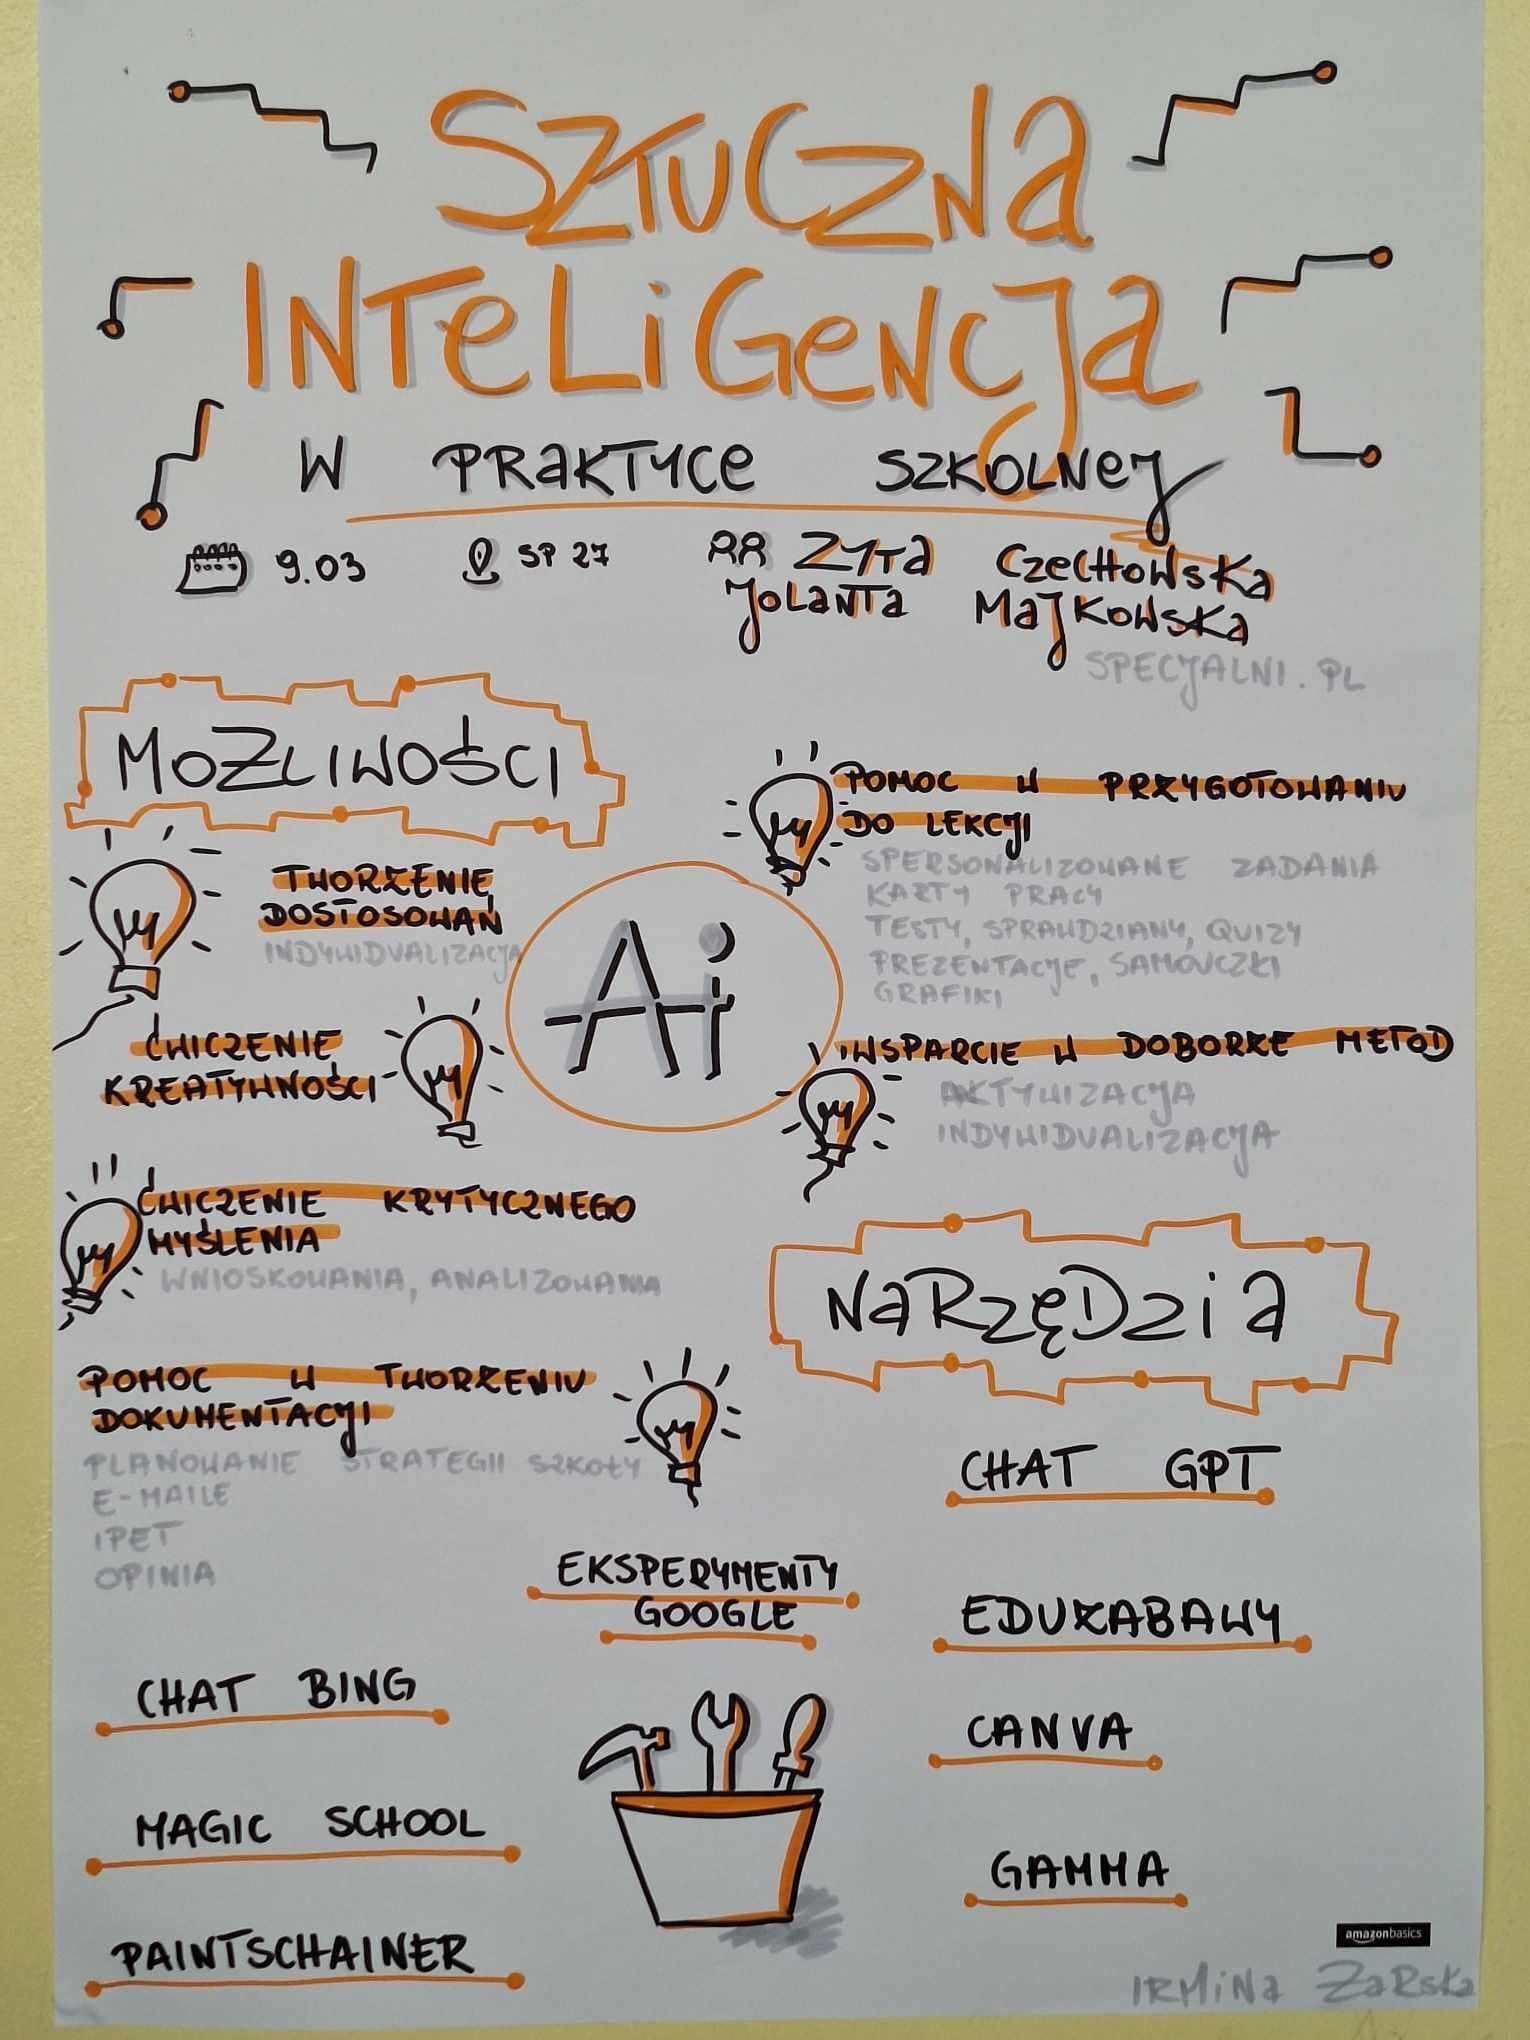 SZTUCZNA
INTELIGENCJA
W PRAKTYCE SZKOLNEJ
9.03
SP 27
ZYTA CZECHOWSKA
JOLANTA MAJKOWSKA
SPECJALNI.PL
MOŻLIWOŚCI
TWORZENIE
DOSTOSOWAŃ
INDYWIDUALIZACJA
ĆWICZENIE
KREATYWNOŚCI
ĆWICZENIE KRYTYCZNEGO
MYŚLENIA
WNIOSKOWANIA, ANALIZOWANIA
POMOC W TWORZENIU
DOKUMENTACJI
PLANOWANIE STRATEGII SZKOŁY
E-MAILE
IPET
OPINIA
Ai
POMOC W PRZYGOTOWANIU
DO LEKCJI
SPERSONALIZOWANE ZADANIA
KARTY PRACY
TESTY, SPRAWDZIANY, QUIZY
PREZENTACJE, SAMOUCZKI
GRAFIKI
WSPARCIE W DOBORZE METOD
AKTYWIZACJA
INDYWIDUALIZACJA
NARZĘDZIA
CHAT GPT
EKSPERYMENTY
GOOGLE
EDUZABAWY
CHAT BING
CANVA
MAGIC SCHOOL
GAMMA
PAINTSCHAINER
amazonbasics
IRMINA ŻARSKA